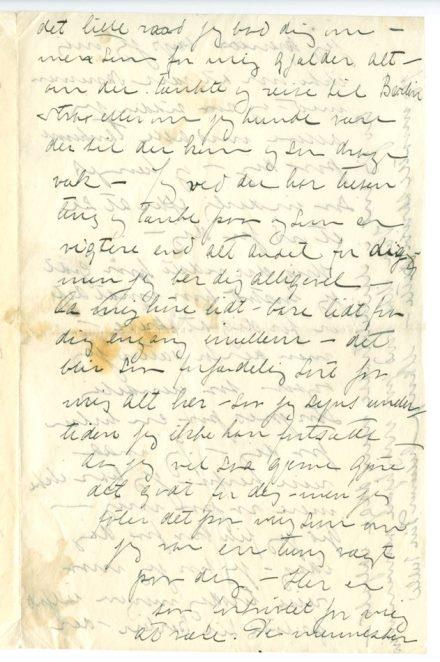 det lille raad jeg bad dig om –
men som for mig gjælder alt –
om du tænkte og reise til Berlin
strax eller om jeg kunde være
der til du kom og son drage
væk – Jeg ved du har tusen
ting og tænke paa og som er
vigtere end alt andet for dig –
men jeg ber dig alligevel –
La mig høre lidt – bare lidt fra
dig engang imellem – det
blir saa forfærdelig sort for
mig alt her – saa jeg synes under
tiden jeg ikke kan fortsætte
da jeg vil saa gjerne gjøre
det godt for dig – men jeg
føler det paa mig som om
jeg var en tung vægt
paa dig – Her er
saa for mig
at være. De mennesker